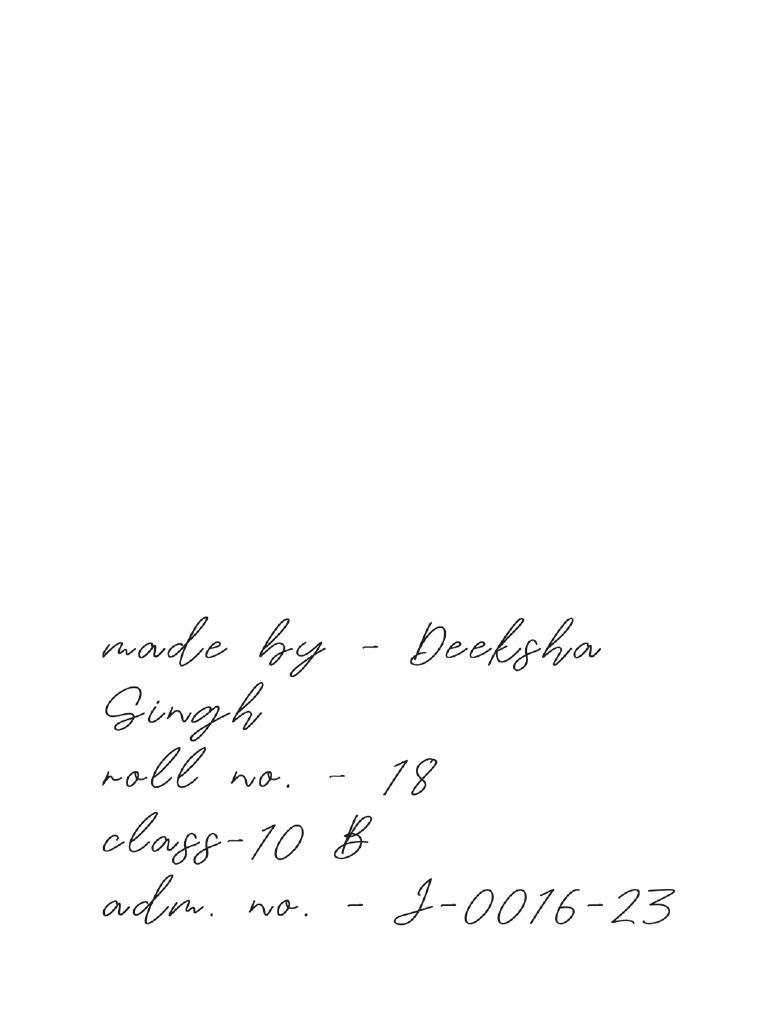 made by - Deeksha
Singh
roll no. - 18
class-10 B
adm. no. - J-0016-23